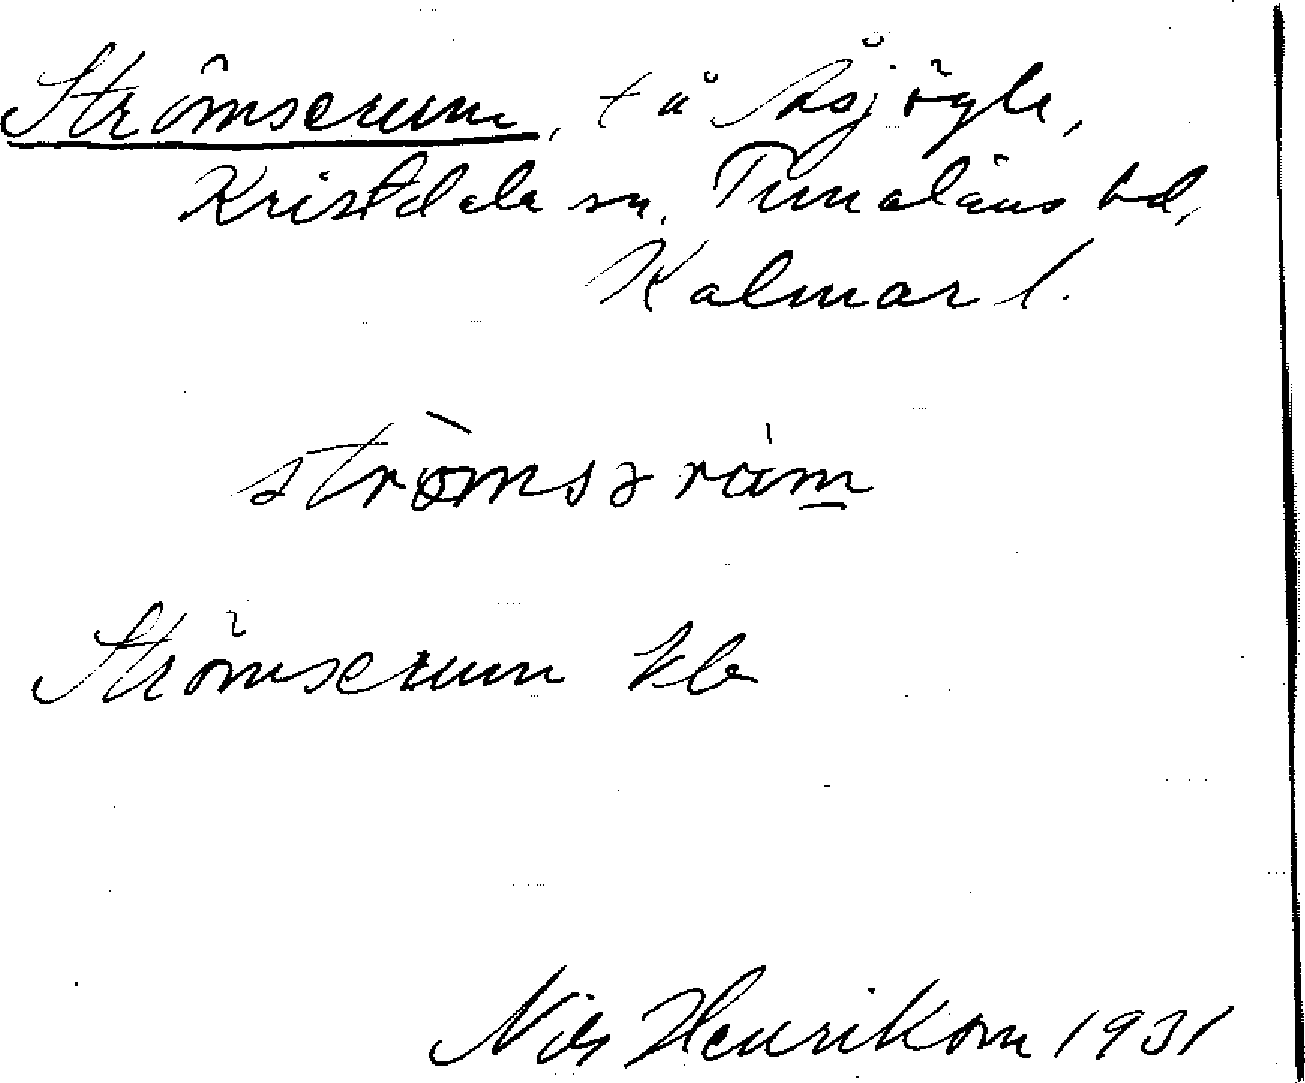 Strömserum, t å
Kristdala sn, Tunaläns hd,
Kalmar l.
strömsərùm
Strömserum kb
Nils Henrikson 1931